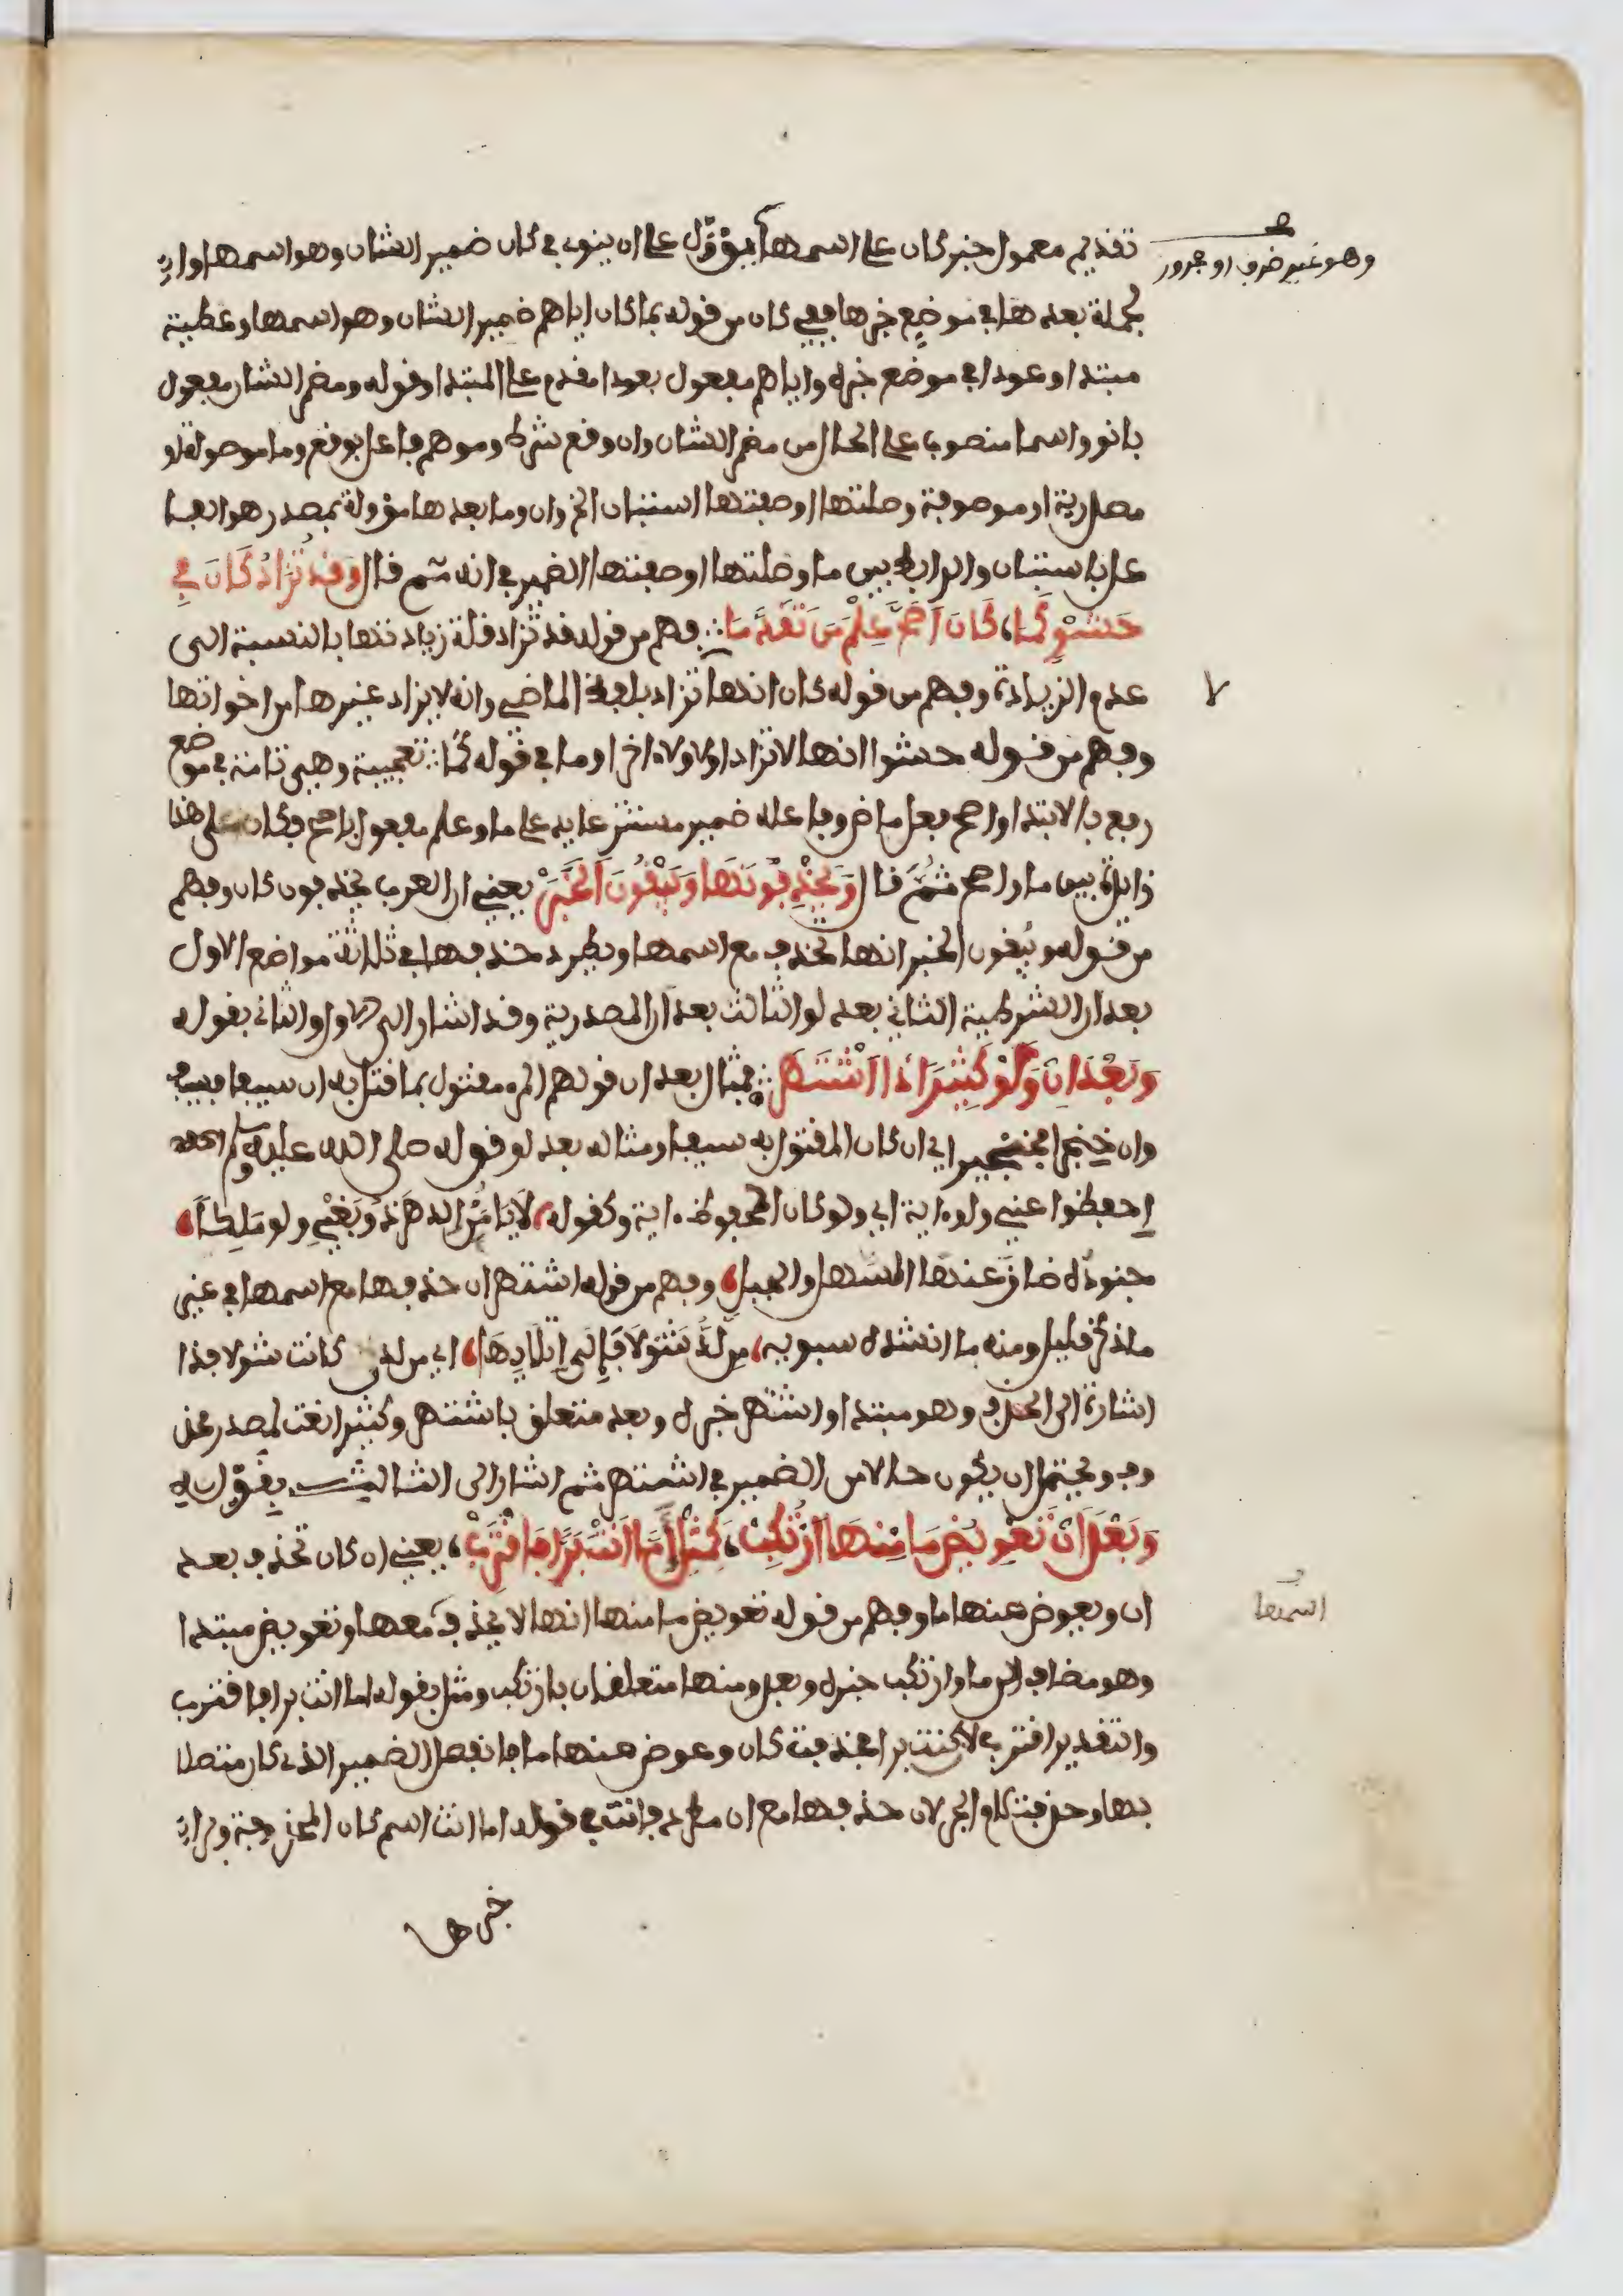 وهو غير ظرف او مجرور
تقديم معمول خبر كان على اسمها فيؤول على ان ينوى في كان ضمير الشان وهو اسمها وان
الجملة بعدها في موضع خبرها ففي كان من قوله بما كان اياهم ضمير الشان وهو اسمها وعطية
مبتدا وعودا في موضع خبره واياهم مفعول بعودا مقدم على المبتدا وقوله ومضمر الشان مفعول
بانو واسما منصوب على الحال من مضمر الشان وان وقع شرط وموهم فاعل بوقع وما موصولة او
مصدرية او موصوفة وصلتها او صفتها استبان الخ وان وما بعدها مؤولة بمصدر هو الفا
عل باستبان والرابط بين ما وصلتها او صفتها الضمير في انه ثم قال وَقَد تُزَادُ كَانَ فِي
حَشْوٍ كَمَا، كَانَ أَصَحَّ عِلْمَ مَن تَقَدَّمَا ∴ فهم من قوله قد تزاد قلة زيادتها بالنسبة الى
عدم الزيادة وفهم من قوله كان انها تزاد بلفظ الماضي وانه لا يزاد غيرها من اخواتها
وفهم من قوله حشوا انها لا تزاد اولا ولا اخرا وما في قوله كما ∴ تعجبية وهي تامة في موضع
رفع بالابتدا واصح فعل ماض وفاعله ضمير مستتر عايد على ما وعلم مفعول باصح وكان على هذا
زايدة بين ما واصح ثم قال وَيَحْذِفُونَهَا وَيُبْقُونَ الْخَبَرْ يعني ان العرب يحذفون كان وفهم
من قوله ويبقون الخبر انها تحذف مع اسمها ويطرد حذفها في ثلاثة مواضع الاول
بعد ان الشرطية الثاني بعد لو الثالث بعد ان المصدرية وقد اشار الى الاول والثاني بقوله
وَبَعْدَ اِن وَلَوْ كَثِيرًا ذَا اشْتَهَرْ ∴ فمثال بعد ان قولهم المرء مقتول بما قتل به ان سيفا فسيف
وان خنجرا فخنجر اي ان كان المقتول به سيفا ومثاله بعد لو قوله صلى الله عليه وسلم
احفظوا عني ولو اية اي ولو كان المحفوظ اية وكقوله، لا يَامَنُ الدهرَ ذُو بَغْيٍ ولو مَلِكًا،
جنودُه ضاق عنها السهل والجبل، وفهم من قوله اشتهر ان حذفها مع اسمها في غير
ما ذكر قليل ومنه ما انشده سيبويه، مِن لَدُ شَوْلًا فَإِلَى إِتْلَائِهَا، اي من لدن كانت شولا فذا
اشارة الى الحذف وهو مبتدا واشتهر خبره وبعد متعلق باشتهر وكثيرا نعت لمصدر محذ
وف ويحتمل ان يكون حالا من الضمير في اشتهر ثم اشار الى الثالث بقوله
وَبَعْدَ أَنْ تَعْوِيضُ مَا مِنْهَا ارْتُكِبْ، كَمِثْلِ أَمَّا أَنْتَ بَرًّا فَاقْتَرِبْ، يعني ان كان تحذف بعد
ان ويعوض عنها ما وفهم من قوله تعويض ما منها انها لا يحذف معها وتعويض مبتدا
اسمها
وهو مضاف الى ما وارتكب خبره وبعد ومنها متعلقان بارتكب ومثل بقوله اما انت برا فاقترب
والتقدير اقترب لان كنت برا فحذفت كان وعوض عنها ما فانفصل الضمير الذي كان متصلا
بها وحذفت لام الجر لان حذفها مع ان مطرد فانت في قوله اما انت اسم كان المحذوفة وبرا
خبرها